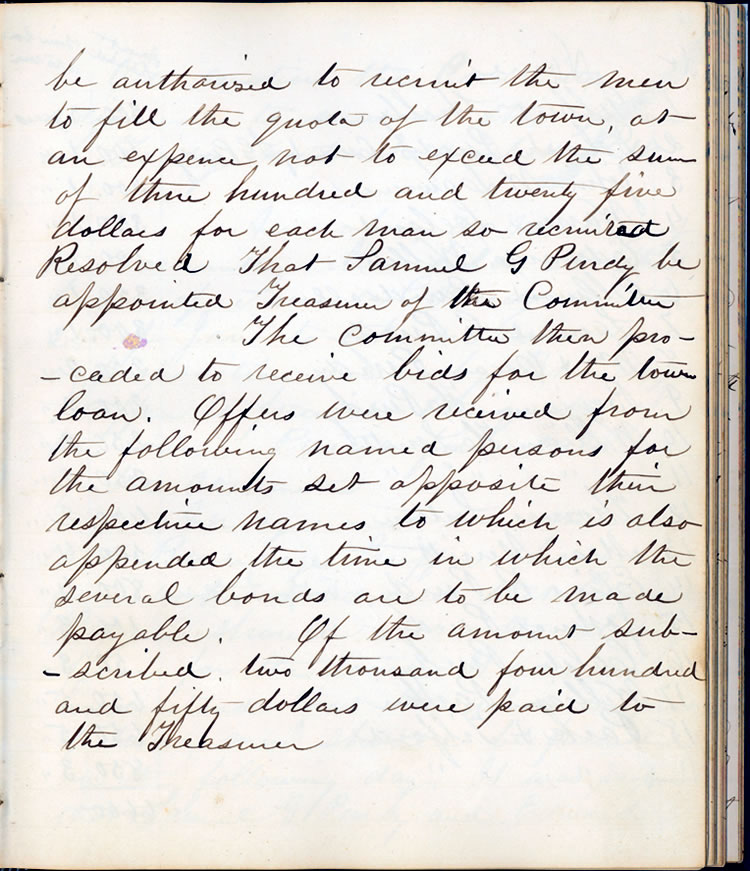 be authorized to recruit the men
to fill the quota of the town, at
an expence not to exceed the sum
of three hundred and twenty five
dollars for each man so recruited
Resolved That Samuel G Purdy be
appointed Treasurer of the Committee
The committee then pro-
-ceded to receive bids for the town
loan. Offers were received from
the following named persons for
the amounts set opposite their
respective names to which is also
appended the time in which the
several bonds are to be made
payable. Of the amount sub-
-scribed. two thousand four hundred
and fifty dollars were paid to
the Treasurer